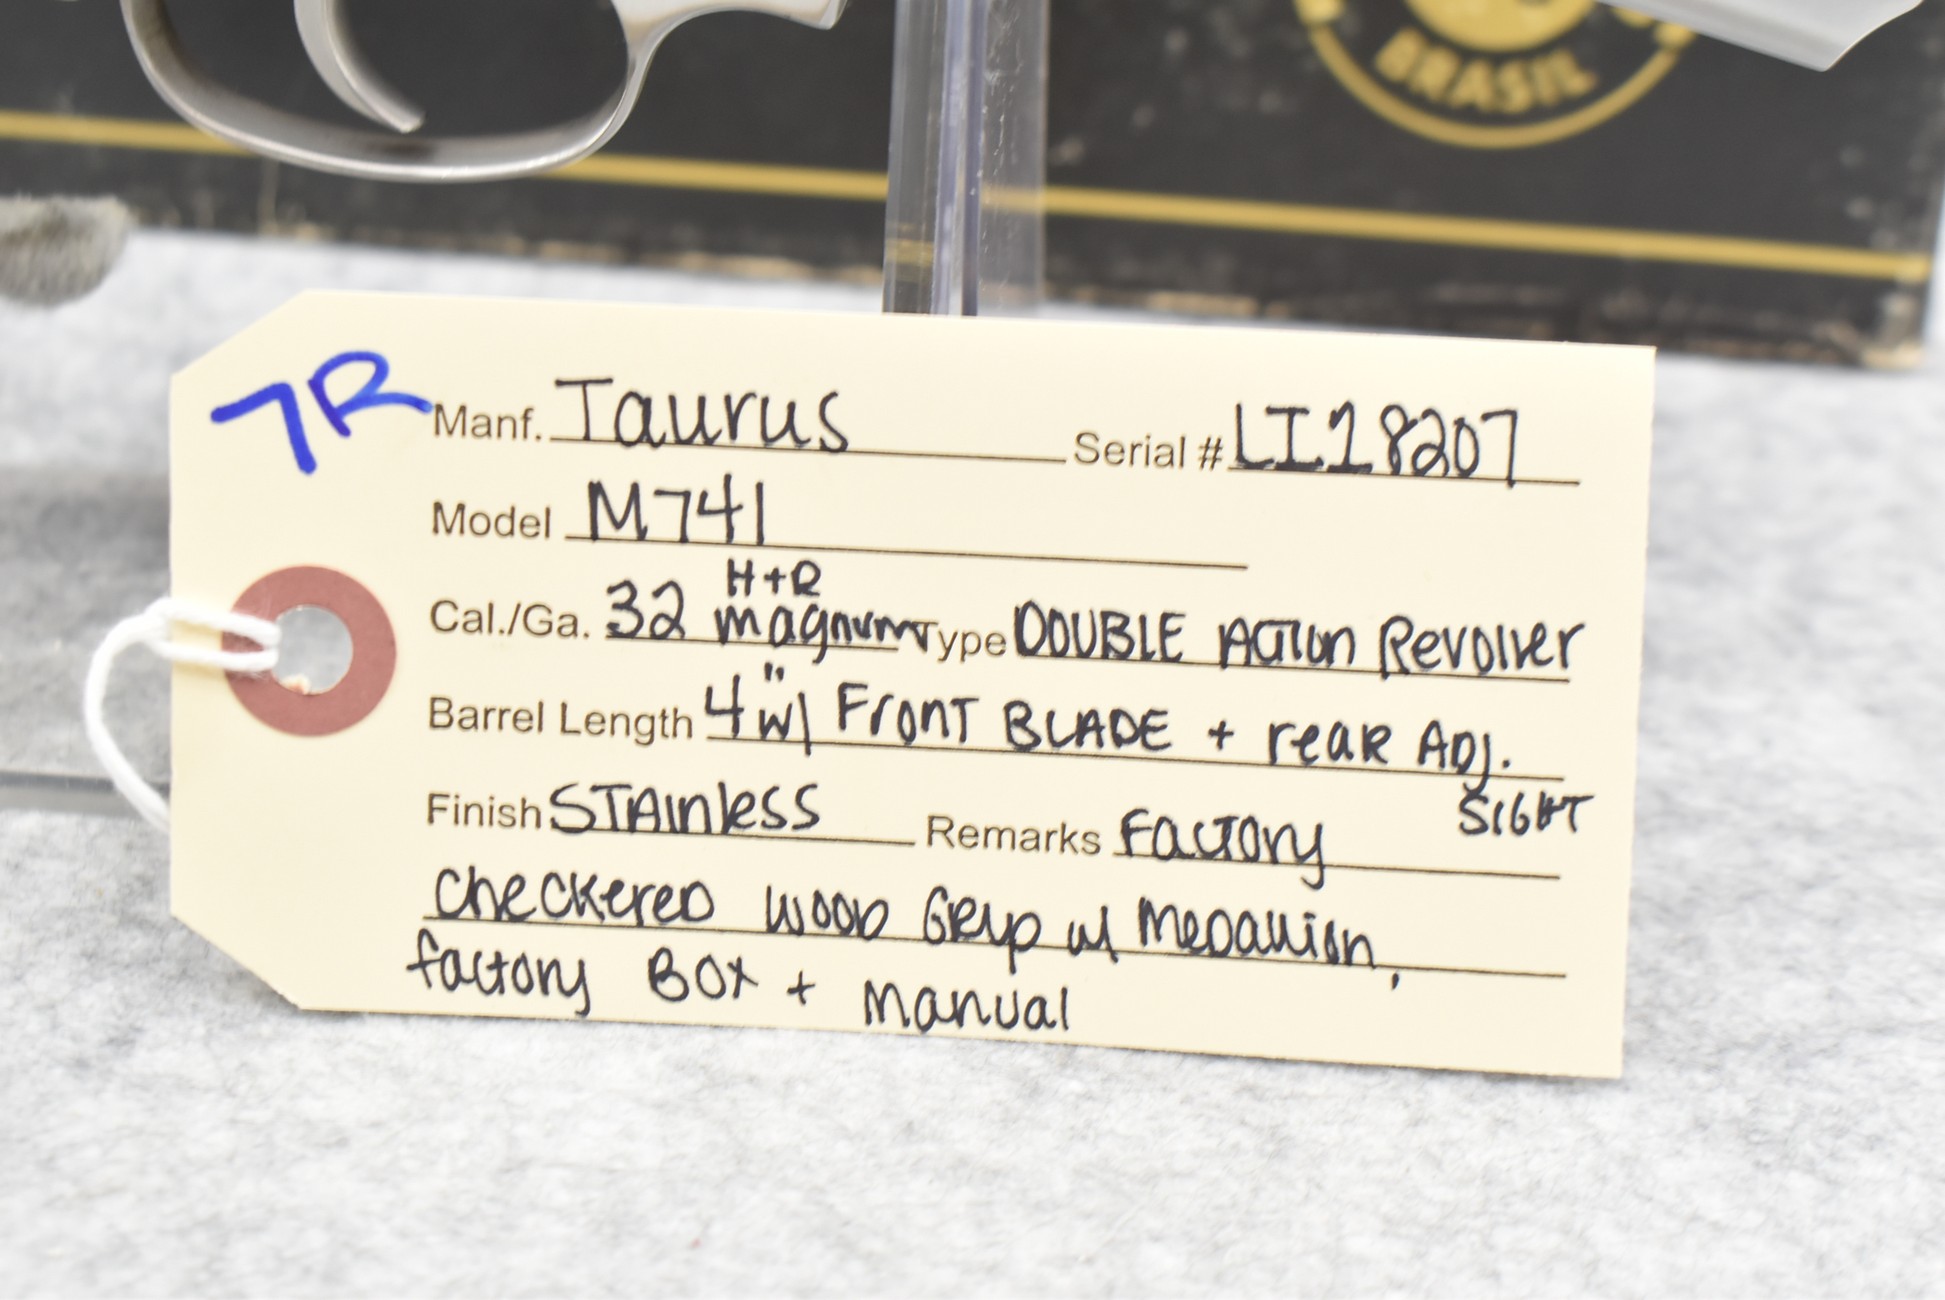 BRASIL
7R
Manf. Taurus Serial # LI18207
Model M741
H+R
Cal./Ga. 32 magnum Type DOUBLE Action Revolver
Barrel Length 4" w/ Front BLADE + reaR ADJ.
SIGHT
Finish STAinless Remarks Factory
checkered wood Grip w/ Medallion,
factory Box + manual